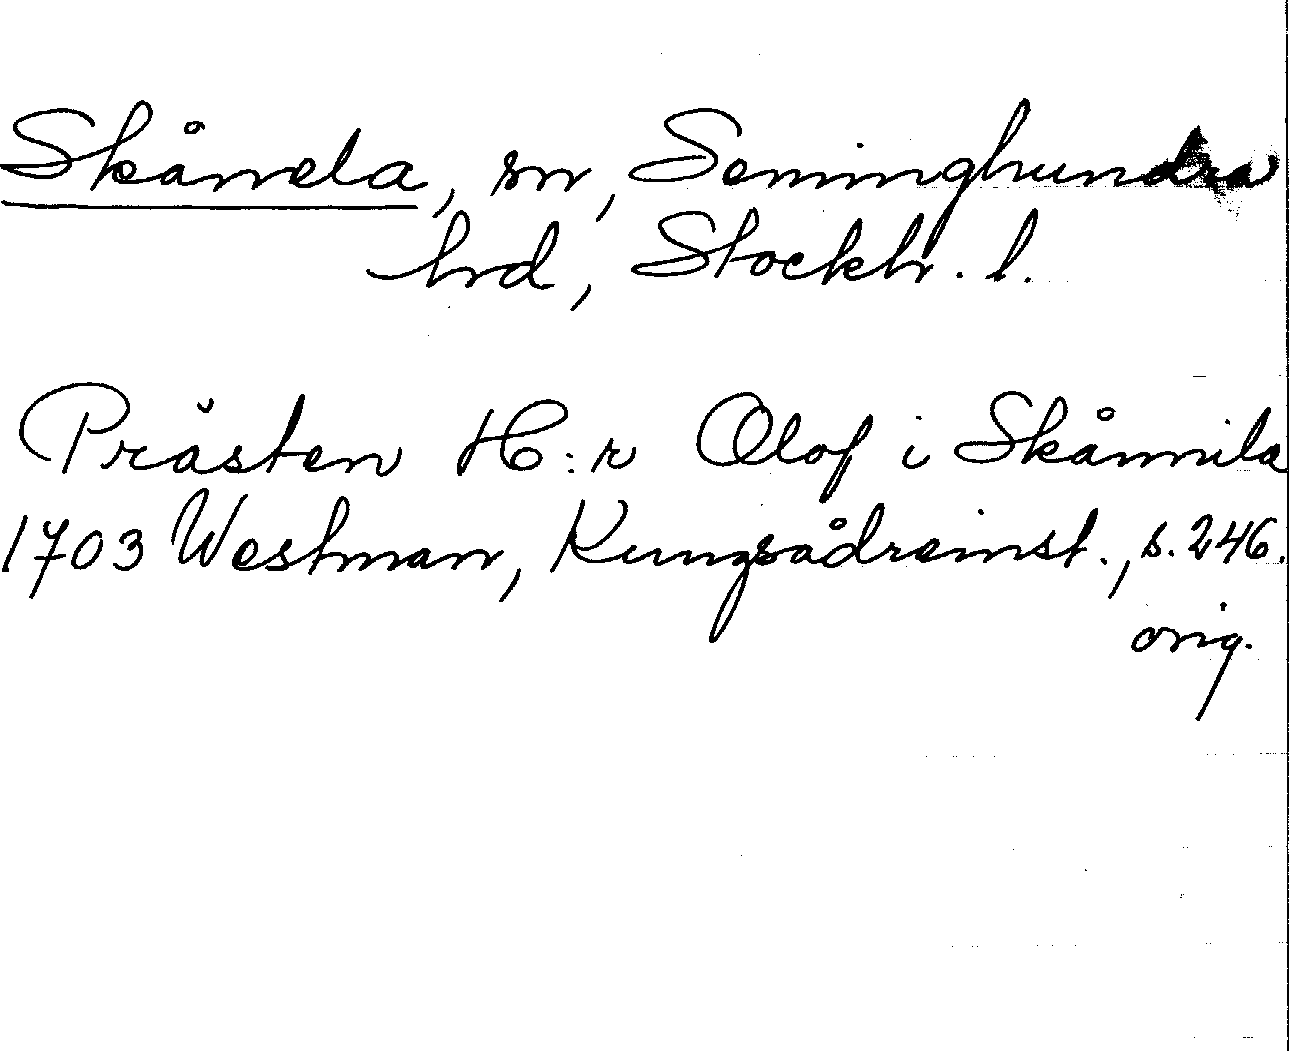 Skånela, sn, Seminghundra
hrd, Stockh. l.
Prästen H:r Olof i Skånnila
1703 Westman, Kungsådreinst., s. 246.
orig.